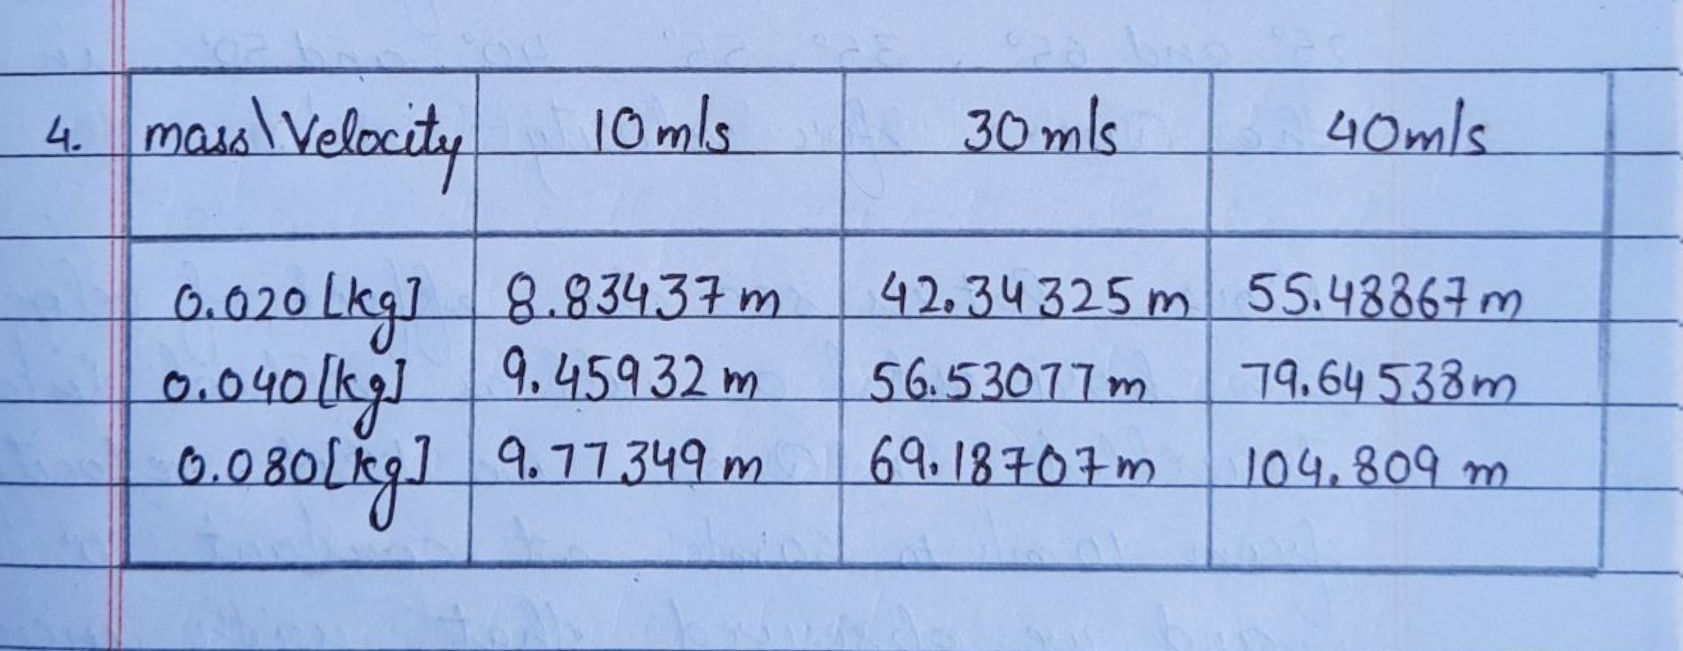 4. mass\Velocity 10m/s 30m/s 40m/s
0.020[kg] 8.83437m 42.34325m 55.48867m
0.040[kg] 9.45932m 56.53077m 79.64538m
0.080[kg] 9.77349m 69.18707m 104.809 m